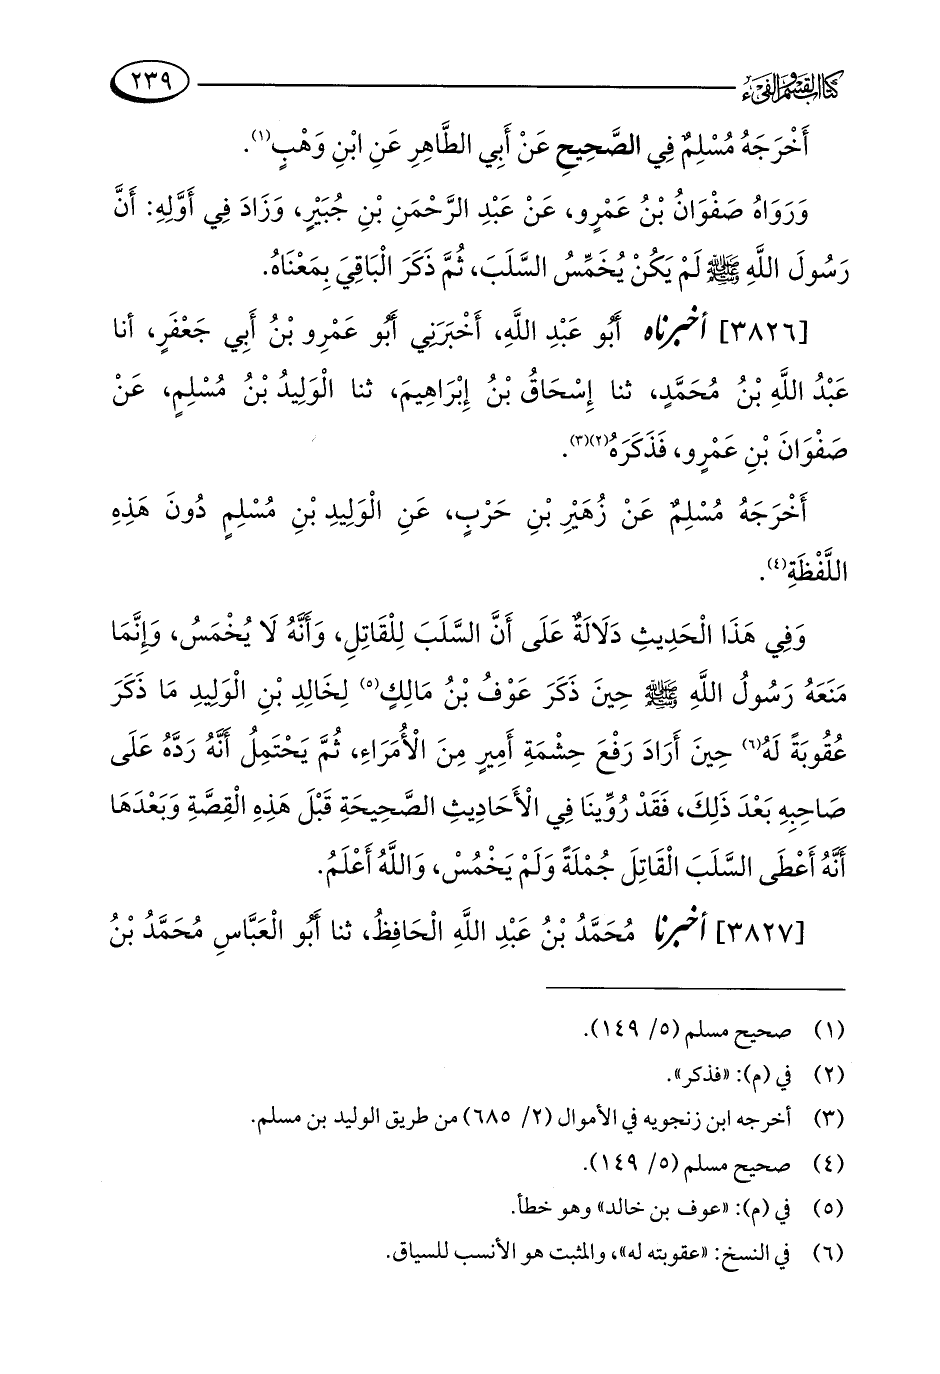 كتاب القسم والفيء
٢٣٩
أَخْرَجَهُ مُسْلِمٌ فِي الصَّحِيحِ عَنْ أَبِي الطَّاهِرِ عَنِ ابْنِ وَهْبٍ(١).
وَرَوَاهُ صَفْوَانُ بْنُ عَمْرٍو، عَنْ عَبْدِ الرَّحْمَنِ بْنِ جُبَيْرٍ، وَزَادَ فِي أَوَّلِهِ: أَنَّ
رَسُولَ اللَّهِ ﷺ لَمْ يَكُنْ يُخَمِّسُ السَّلَبَ، ثُمَّ ذَكَرَ الْبَاقِيَ بِمَعْنَاهُ.
[٣٨٢٦] أخبرناه أَبُو عَبْدِ اللَّهِ، أَخْبَرَنِي أَبُو عَمْرِو بْنُ أَبِي جَعْفَرٍ، أنا
عَبْدُ اللَّهِ بْنُ مُحَمَّدٍ، ثنا إِسْحَاقُ بْنُ إِبْرَاهِيمَ، ثنا الْوَلِيدُ بْنُ مُسْلِمٍ، عَنْ
صَفْوَانَ بْنِ عَمْرٍو، فَذَكَرَهُ(٢)(٣).
أَخْرَجَهُ مُسْلِمٌ عَنْ زُهَيْرِ بْنِ حَرْبٍ، عَنِ الْوَلِيدِ بْنِ مُسْلِمٍ دُونَ هَذِهِ
اللَّفْظَةِ(٤).
وَفِي هَذَا الْحَدِيثِ دَلَالَةٌ عَلَى أَنَّ السَّلَبَ لِلْقَاتِلِ، وَأَنَّهُ لَا يُخْمَسُ، وَإِنَّمَا
مَنَعَهُ رَسُولُ اللَّهِ ﷺ حِينَ ذَكَرَ عَوْفُ بْنُ مَالِكٍ(٥) لِخَالِدِ بْنِ الْوَلِيدِ مَا ذَكَرَ
عُقُوبَةً لَهُ(٦) حِينَ أَرَادَ رَفْعَ حِشْمَةِ أَمِيرٍ مِنَ الْأُمَرَاءِ، ثُمَّ يَحْتَمِلُ أَنَّهُ رَدَّهُ عَلَى
صَاحِبِهِ بَعْدَ ذَلِكَ، فَقَدْ رُوِّينَا فِي الْأَحَادِيثِ الصَّحِيحَةِ قَبْلَ هَذِهِ الْقِصَّةِ وَبَعْدَهَا
أَنَّهُ أَعْطَى السَّلَبَ الْقَاتِلَ جُمْلَةً وَلَمْ يَخْمُسْ، وَاللَّهُ أَعْلَمُ.
[٣٨٢٧] أخبرنا مُحَمَّدُ بْنُ عَبْدِ اللَّهِ الْحَافِظُ، ثنا أَبُو الْعَبَّاسِ مُحَمَّدُ بْنُ
(١) صحيح مسلم (٥/ ١٤٩).
(٢) في (م): «فذكر».
(٣) أخرجه ابن زنجويه في الأموال (٢/ ٦٨٥) من طريق الوليد بن مسلم.
(٤) صحيح مسلم (٥/ ١٤٩).
(٥) في (م): «عوف بن خالد» وهو خطأ.
(٦) في النسخ: «عقوبته له»، والمثبت هو الأنسب للسياق.